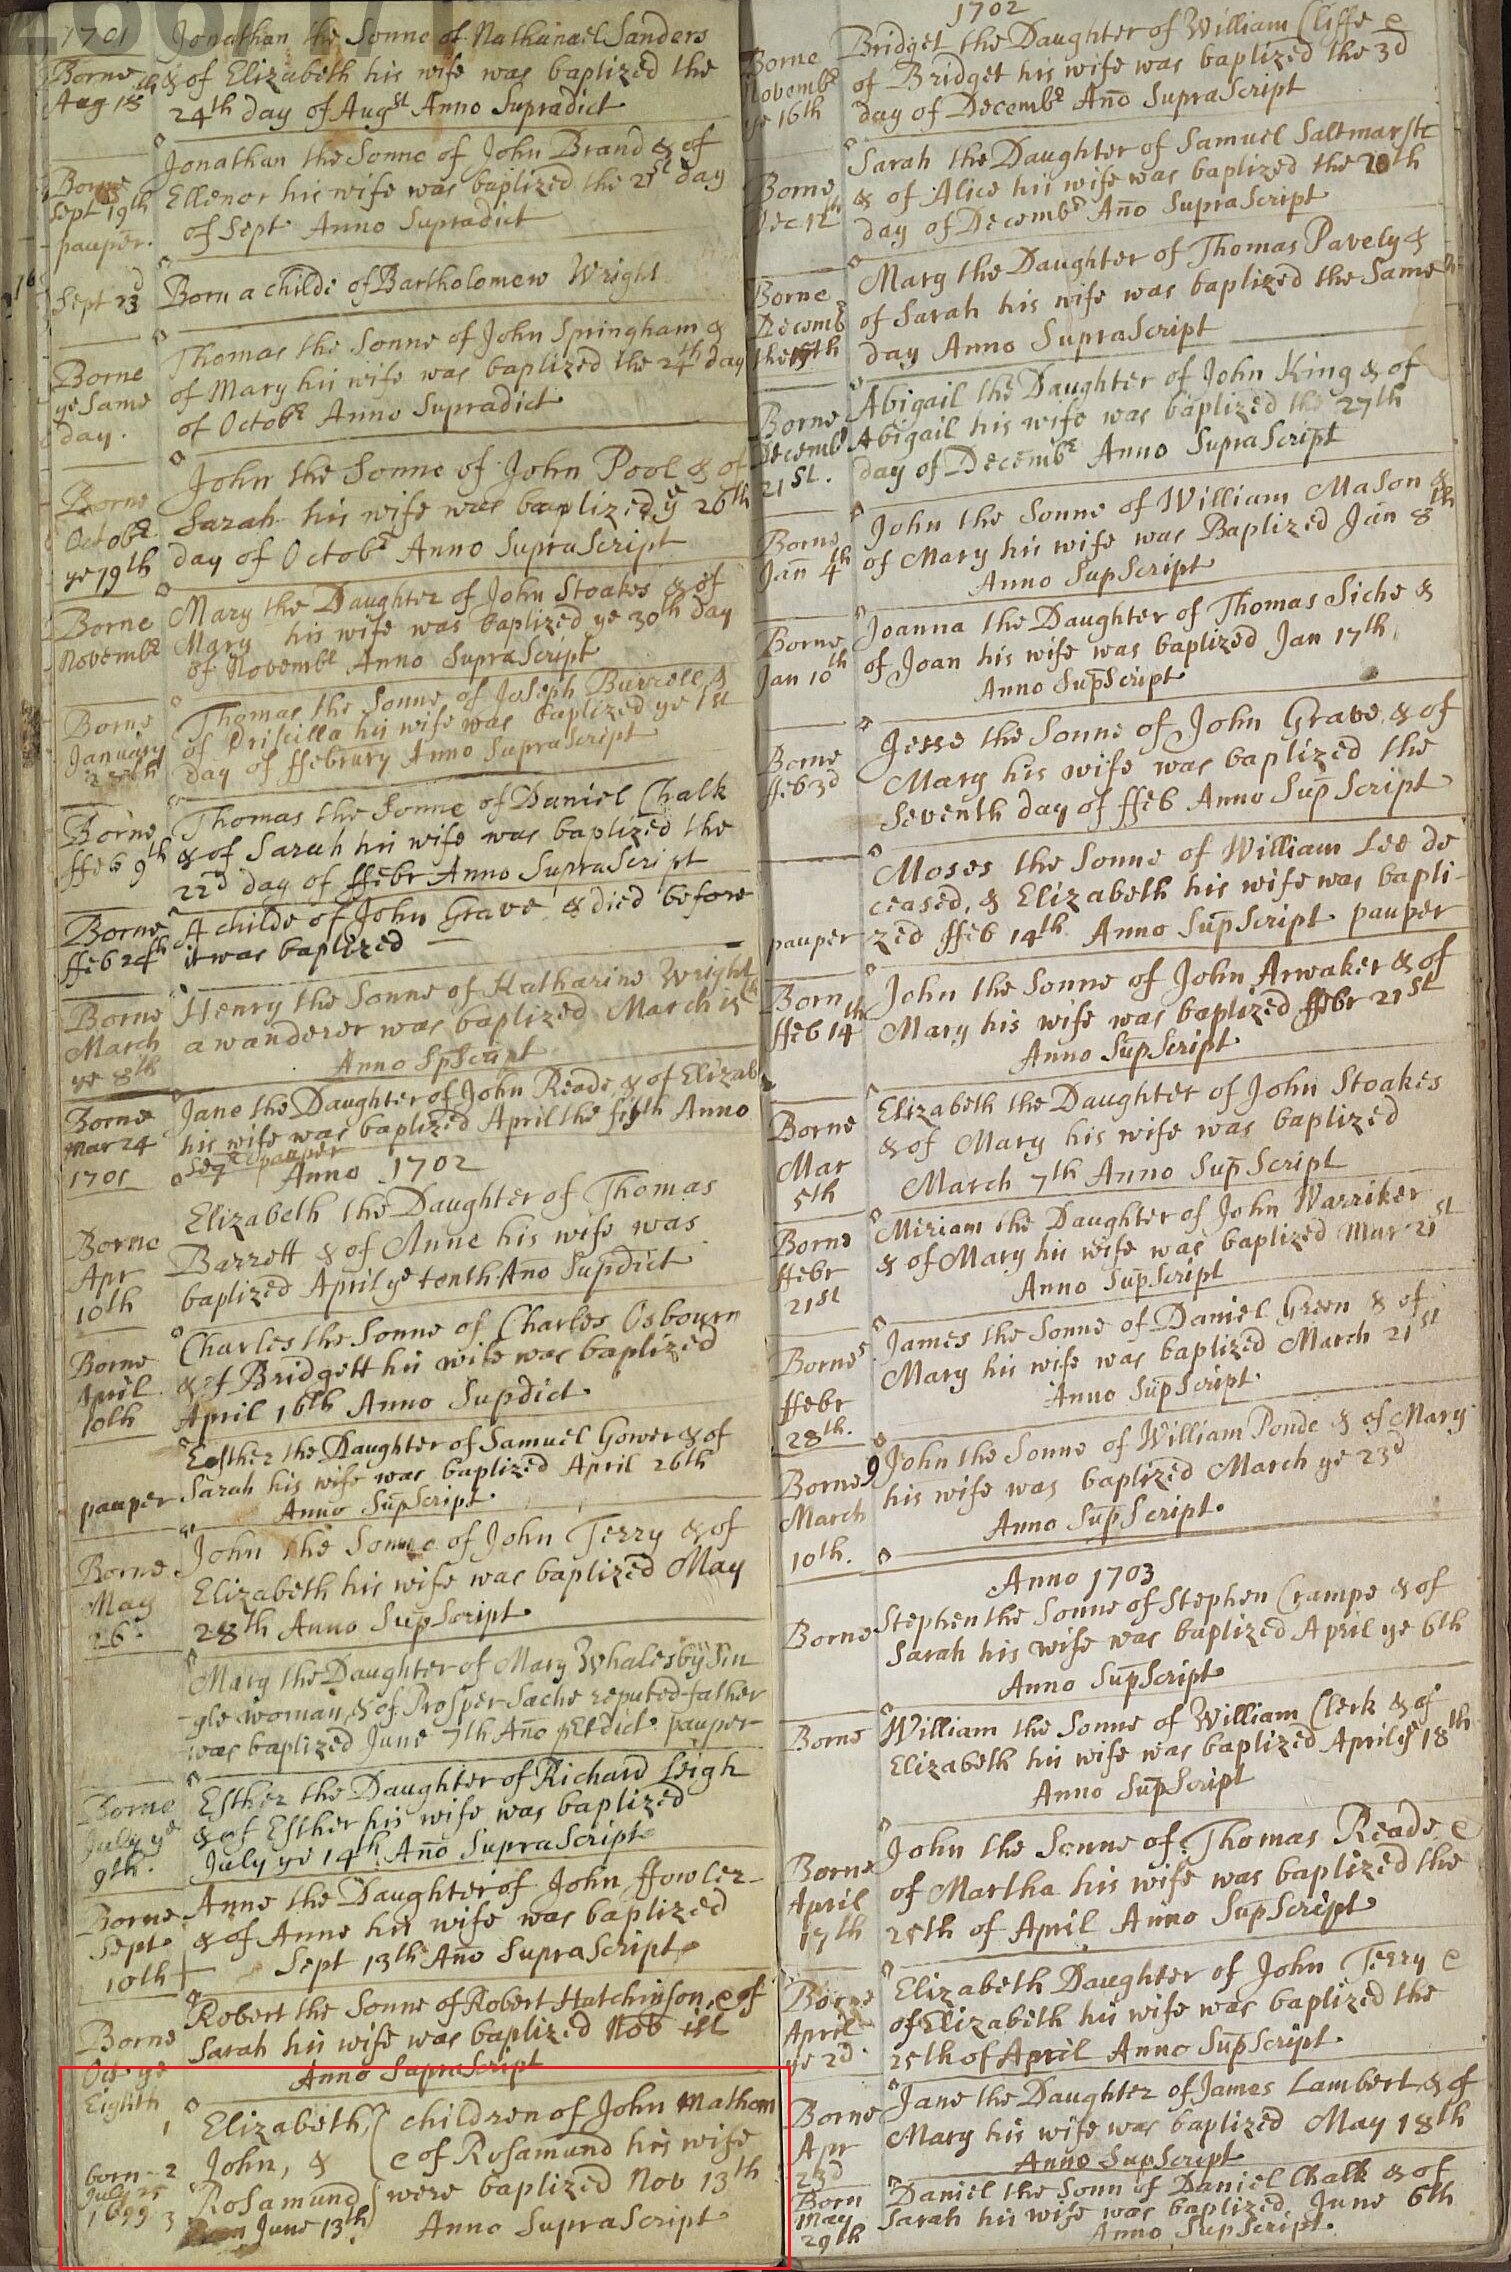 1701
Jonathan the Sonne of Nathanael Sanders
Borne
& of Elizabeth his wife was baptized the
Aug 18th
24th day of Augst Anno Supradict
Jonathan the Sonne of John Brand & of
Borne
Ellenor his wife was baptized the 21st day
Sept 19th
of Sept Anno Supradict
pauper.
Sept 23d
Born a childe of Bartholomew Wright
Thomas the Sonne of John Springham &
Borne
of Mary his wife was baptized the 24th day
ye Same
of Octobr Anno Supradict
day.
John the Sonne of John Pool & of
Borne
Sarah his wife was baptized ye 26th
Octobr
day of Octobr Anno SupraScript
ye 19th
Mary the Daughter of John Stoakes & of
Borne
Mary his wife was baptized ye 30th day
Novembr
of Novembr Anno SupraScript
Thomas the Sonne of Joseph Burrell &
Borne
of Priscilla his wife was baptized ye 1st
January
day of ffebrury Anno SupraScript
Thomas the Sonne of Daniel Chalk
Borne
& of Sarah his wife was baptized the
ffeb 9th
22d day of ffebr Anno SupraScript
Borne
A childe of John Grave & died before
ffeb 24th
it was baptized
Henry the Sonne of Katharine Wright
Borne
a wanderer was baptized March 15th
March
Anno SpScript
ye 8th
Jane the Daughter of John Reade & of Elizab
Borne
his wife was baptized April the fifth Anno
Mar 24
seqt pauper
1701
Anno 1702
Elizabeth the Daughter of Thomas
Borne
Barrett & of Anne his wife was
Apr
baptized April ye tenth Ano Supdict
10th
Charles the Sonne of Charles Osbourn
Borne
& of Bridgett his wife was baptized
April
April 16th Anno Supdict.
10th
Esther the Daughter of Samuel Gower & of
Sarah his wife was baptized April 26th
pauper
Anno SupScript.
John the Sonne of John Terry & of
Borne
Elizabeth his wife was baptized May
May
28th Anno SupScript
26.
Mary the Daughter of Mary Whalesby Sin
gle woman, & of Prosper Sache reputed father
was baptized June 7th Ano pauper
Esther the Daughter of Richard Leigh
Borne
& of Esther his wife was baptized
July ye
July ye 14th Ano SupraScript
9th.
Anne the Daughter of John ffowler
Borne
& of Anne his wife was baptized
Sept
Sept 13th Ano SupraScript
10th
Robert the Sonne of Robert Hutchinson, e of
Borne
Sarah his wife was baptized Nov 1st
Oct ye
Anno SupraScript
Eighth
1
Elizabeth, children of John Mathom
born 2
John, & e of Rosamund his wife
July 25
1699 3
Rosamund were baptized Nov 13th
June 13th
Anno SupraScript
1702
Bridget the Daughter of William Cliffe e
Borne
of Bridget his wife was baptized the 3d
Novembr
day of Decembr Ano SupraScript
ye 16th
Sarah the Daughter of Samuel Saltmarshe
Borne
& of Alice his wife was baptized the 20th
Dec 12th
day of Decembr Ano SupraScript
Mary the Daughter of Thomas Pavely &
Borne
of Sarah his wife was baptized the Same
Decembr
day Anno SupraScript
Abigail the Daughter of John King & of
Borne
Abigail his wife was baptized the 27th
Decembr
day of Decembr Anno SupraScript
21st.
John the Sonne of William Mason &
Borne
of Mary his wife was Baptized Jan 8th
Jan 4th
Anno SupScript
Joanna the Daughter of Thomas Siche &
Borne
of Joan his wife was baptized Jan 17th
Jan 10th
Anno SupScript
Jesse the Sonne of John Grave & of
Borne
Mary his wife was baptized the
ffeb 3d
Seventh day of ffeb Anno Sup Script
Moses the Sonne of William Lee de
ceased, & Elizabeth his wife was bapti-
pauper
zed ffeb 14th Anno SupScript pauper
John the Sonne of John Arwaker & of
Born
Mary his wife was baptized ffebr 21st
ffeb 14th
Anno SupScript
Elizabeth the Daughter of John Stoakes
Borne
& of Mary his wife was baptized
Mar
March 7th Anno SupScript
5th
Miriam the Daughter of John Warriker
Borne
& of Mary his wife was baptized Mar 21st
ffebr
Anno SupScript
21st
James the Sonne of Daniel Green & of
Borne
Mary his wife was baptized March 21st
ffebr
Anno SupScript
28th.
John the Sonne of William Ponde & of Mary
Borne
his wife was baptized March ye 23d
March
Anno SupScript.
10th.
Anno 1703
Stephen the Sonne of Stephen Crampe & of
Borne
Sarah his wife was baptized April ye 6th
Anno SupScript
William the Sonne of William Clerk & of
Borne
Elizabeth his wife was baptized April ye 18th
Anno SupScript
John the Sonne of Thomas Reade e
Borne
of Martha his wife was baptized the
April
25th of April Anno SupScript
17th
Elizabeth Daughter of John Terry e
Borne
of Elizabeth his wife was baptized the
April
25th of April Anno SupScript.
ye 2d
Jane the Daughter of James Lambert & of
Borne
Mary his wife was baptized May 18th
Apr
Anno SupScript
23d
Daniel the Sonn of Daniel Chalk & of
Born
Sarah his wife was baptized June 6th
May
Anno SupScript.
29th